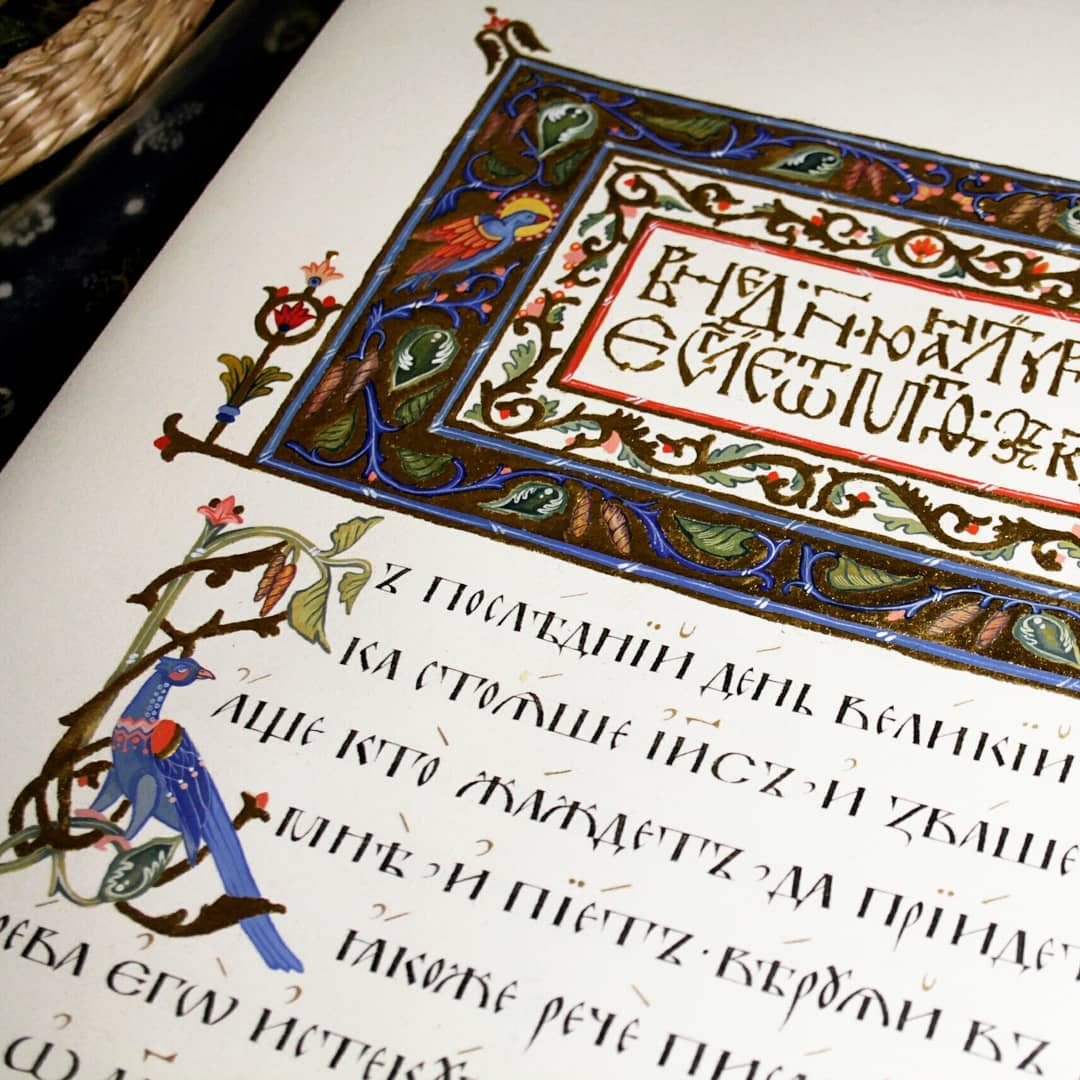 В НЕД · Н҃ · Ю НА ЛИТꙋР
Въ послѣ́днїй де́нь вели́кїй
ка стоѧ́ше і҆и҃съ, и҆ зва́ше
а҆́ще кто̀ жа́ждетъ, да прїи́дет
мнѣ̀, и҆ пїе́тъ · вѣ́рꙋѧй въ
ꙗ҆́коже речѐ пис
рева є҆гѡ̀ и҆стекꙋ́